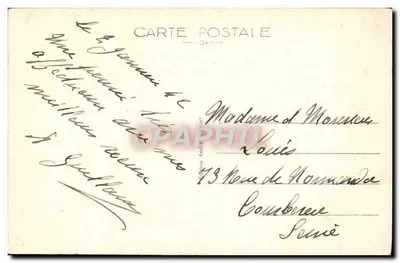 CARTE POSTALE
le 2 Janvier 42
Une pensée
affectueuse avec mes
meilleurs vœux
Madame & Monsieur
Louis
73 Rue de Normandie
Courbevoie
Seine
CARTE-POSTALE